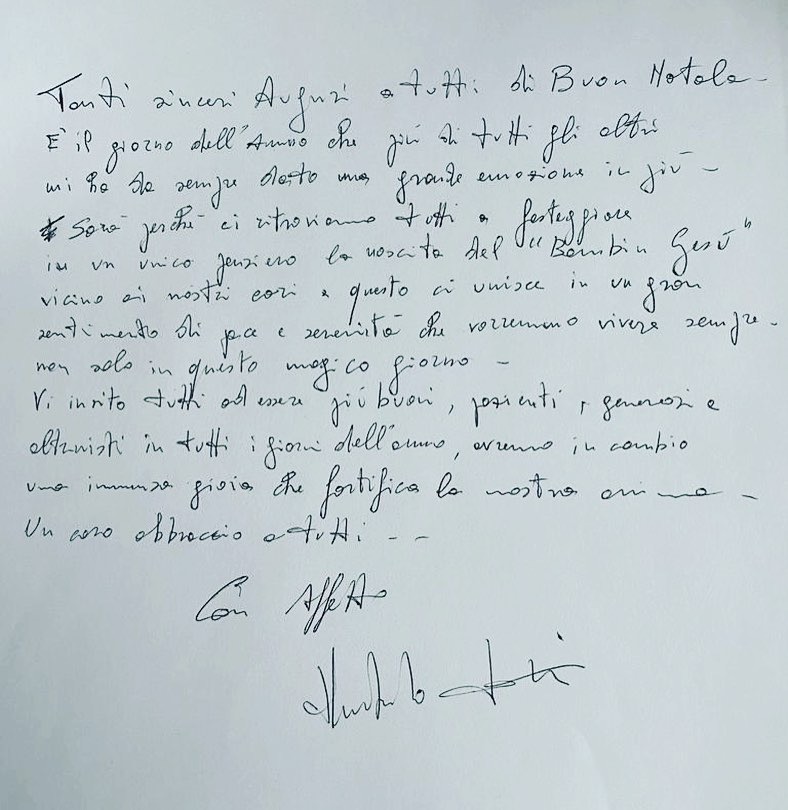 Tanti sinceri Auguri a tutti di Buon Natale -
E' il giorno dell'Anno che più di tutti gli altri
mi ha da sempre dato una grande emozione in più -
Sarà perché ci ritroviamo tutti a festeggiare
in un unico pensiero la nascita del "Bambin Gesù"
vicino ai nostri cari e questo ci unisce in un gran
sentimento di pace e serenità che vorremmo vivere sempre -
non solo in questo magico giorno -
Vi invito tutti ad essere più buoni, pazienti, generosi e
altruisti in tutti i giorni dell'anno, avremo in cambio
una immensa gioia che fortifica la nostra anima -
Un caro abbraccio a tutti - -
Con Affetto